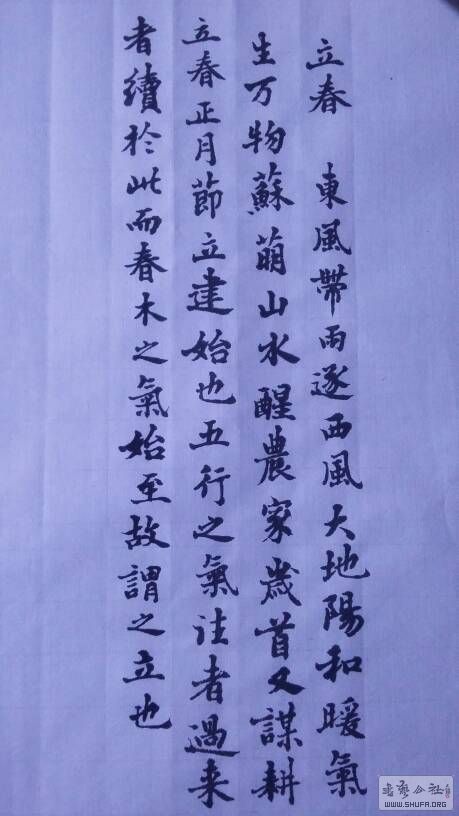 立春 東風帶雨逐西風大地陽和暖氣
生万物蘇萌山水醒農家歲首又謀耕
立春正月節立建始也五行之氣往者過来
者續於此而春木之氣始至故謂之立也
WWW.SHUFA.ORG